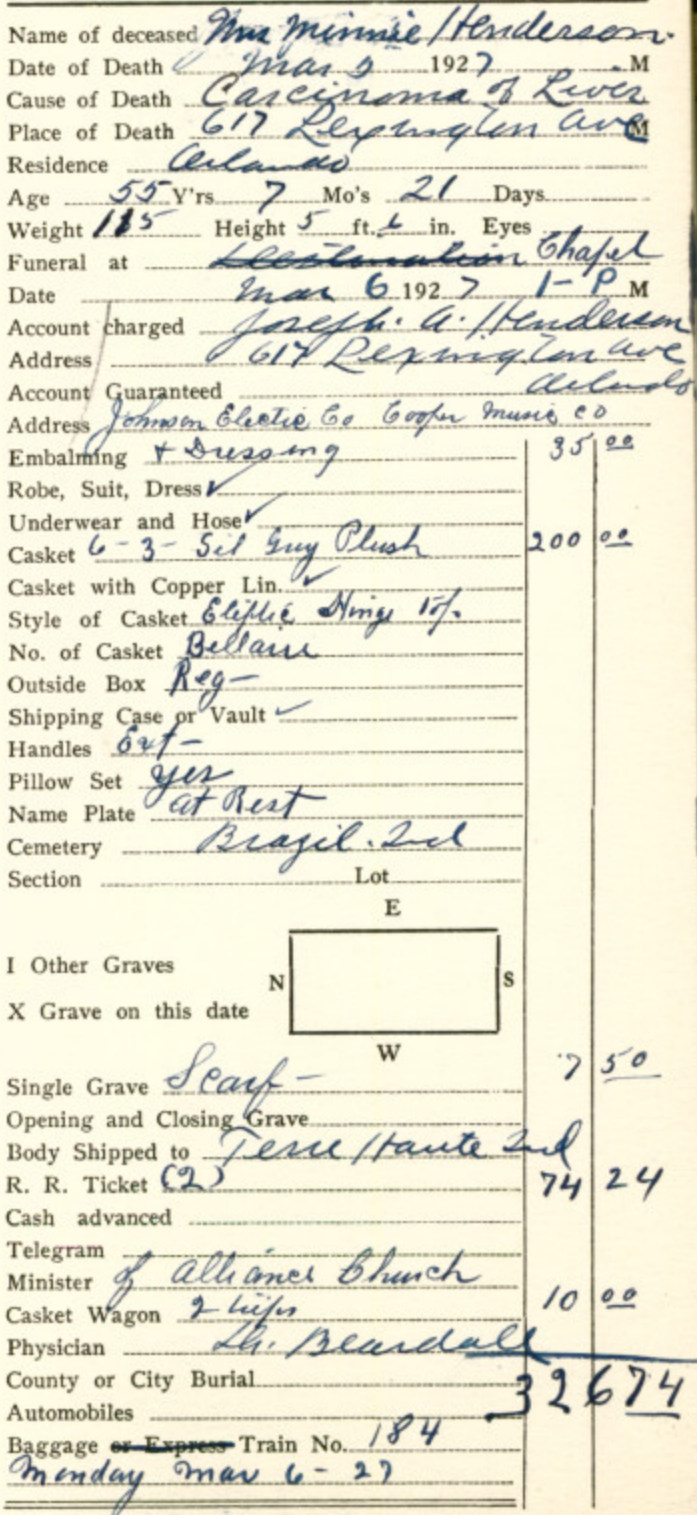 Name of deceased Mrs Minnie Henderson.
Date of Death Mar 5 1927 M
Cause of Death Carcinoma of Liver
Place of Death 617 Lexington Ave M
Residence Orlando
Age 55 Y'rs 7 Mo's 21 Days
Weight 115 Height 5 ft. 6 in. Eyes
Funeral at Chapel
Date Mar 6 1927 1- P M
Account charged Joseph. A. Henderson
Address 617 Lexington Ave
Account Guaranteed Orlando
Address Johnson Electric Co Cooper Music Co
Embalming + Dressing 35 00
Robe, Suit, Dress ✓
Underwear and Hose ✓
Casket 6-3- Sil Gray Plush 200 00
Casket with Copper Lin. ✓
Style of Casket Eliptic Hinge
No. of Casket Bellaire
Outside Box Reg-
Shipping Case or Vault ✓
Handles Ext-
Pillow Set yes
Name Plate at Rest
Cemetery Brazil. Ind
Section Lot
E
I Other Graves
N S
X Grave on this date
W
Single Grave Scarf- 7 50
Opening and Closing Grave
Body Shipped to Terre Haute Ind
R. R. Ticket (2) 74 24
Cash advanced
Telegram
Minister of Alliance Church
Casket Wagon 2 trips 10 00
Physician Dr. Beardall
County or City Burial 326 74
Automobiles
Baggage or Express Train No. 184
Monday Mar 6-27